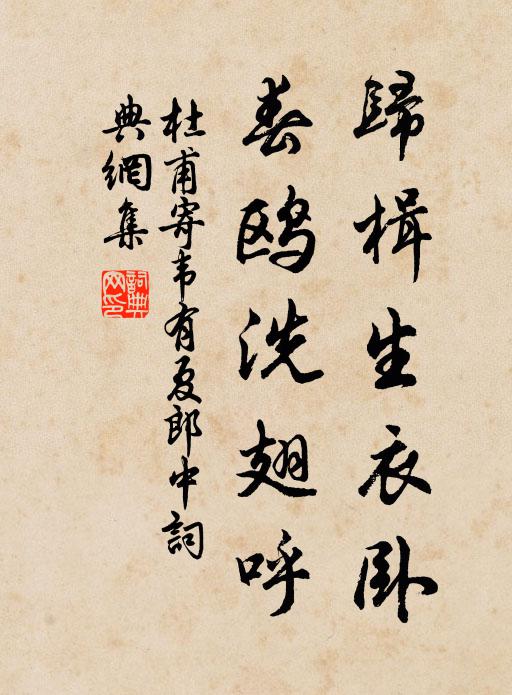 歸楫生衣臥
春鷗洗翅呼
杜甫寄韦有夏郎中詞
典網集
詞典网印